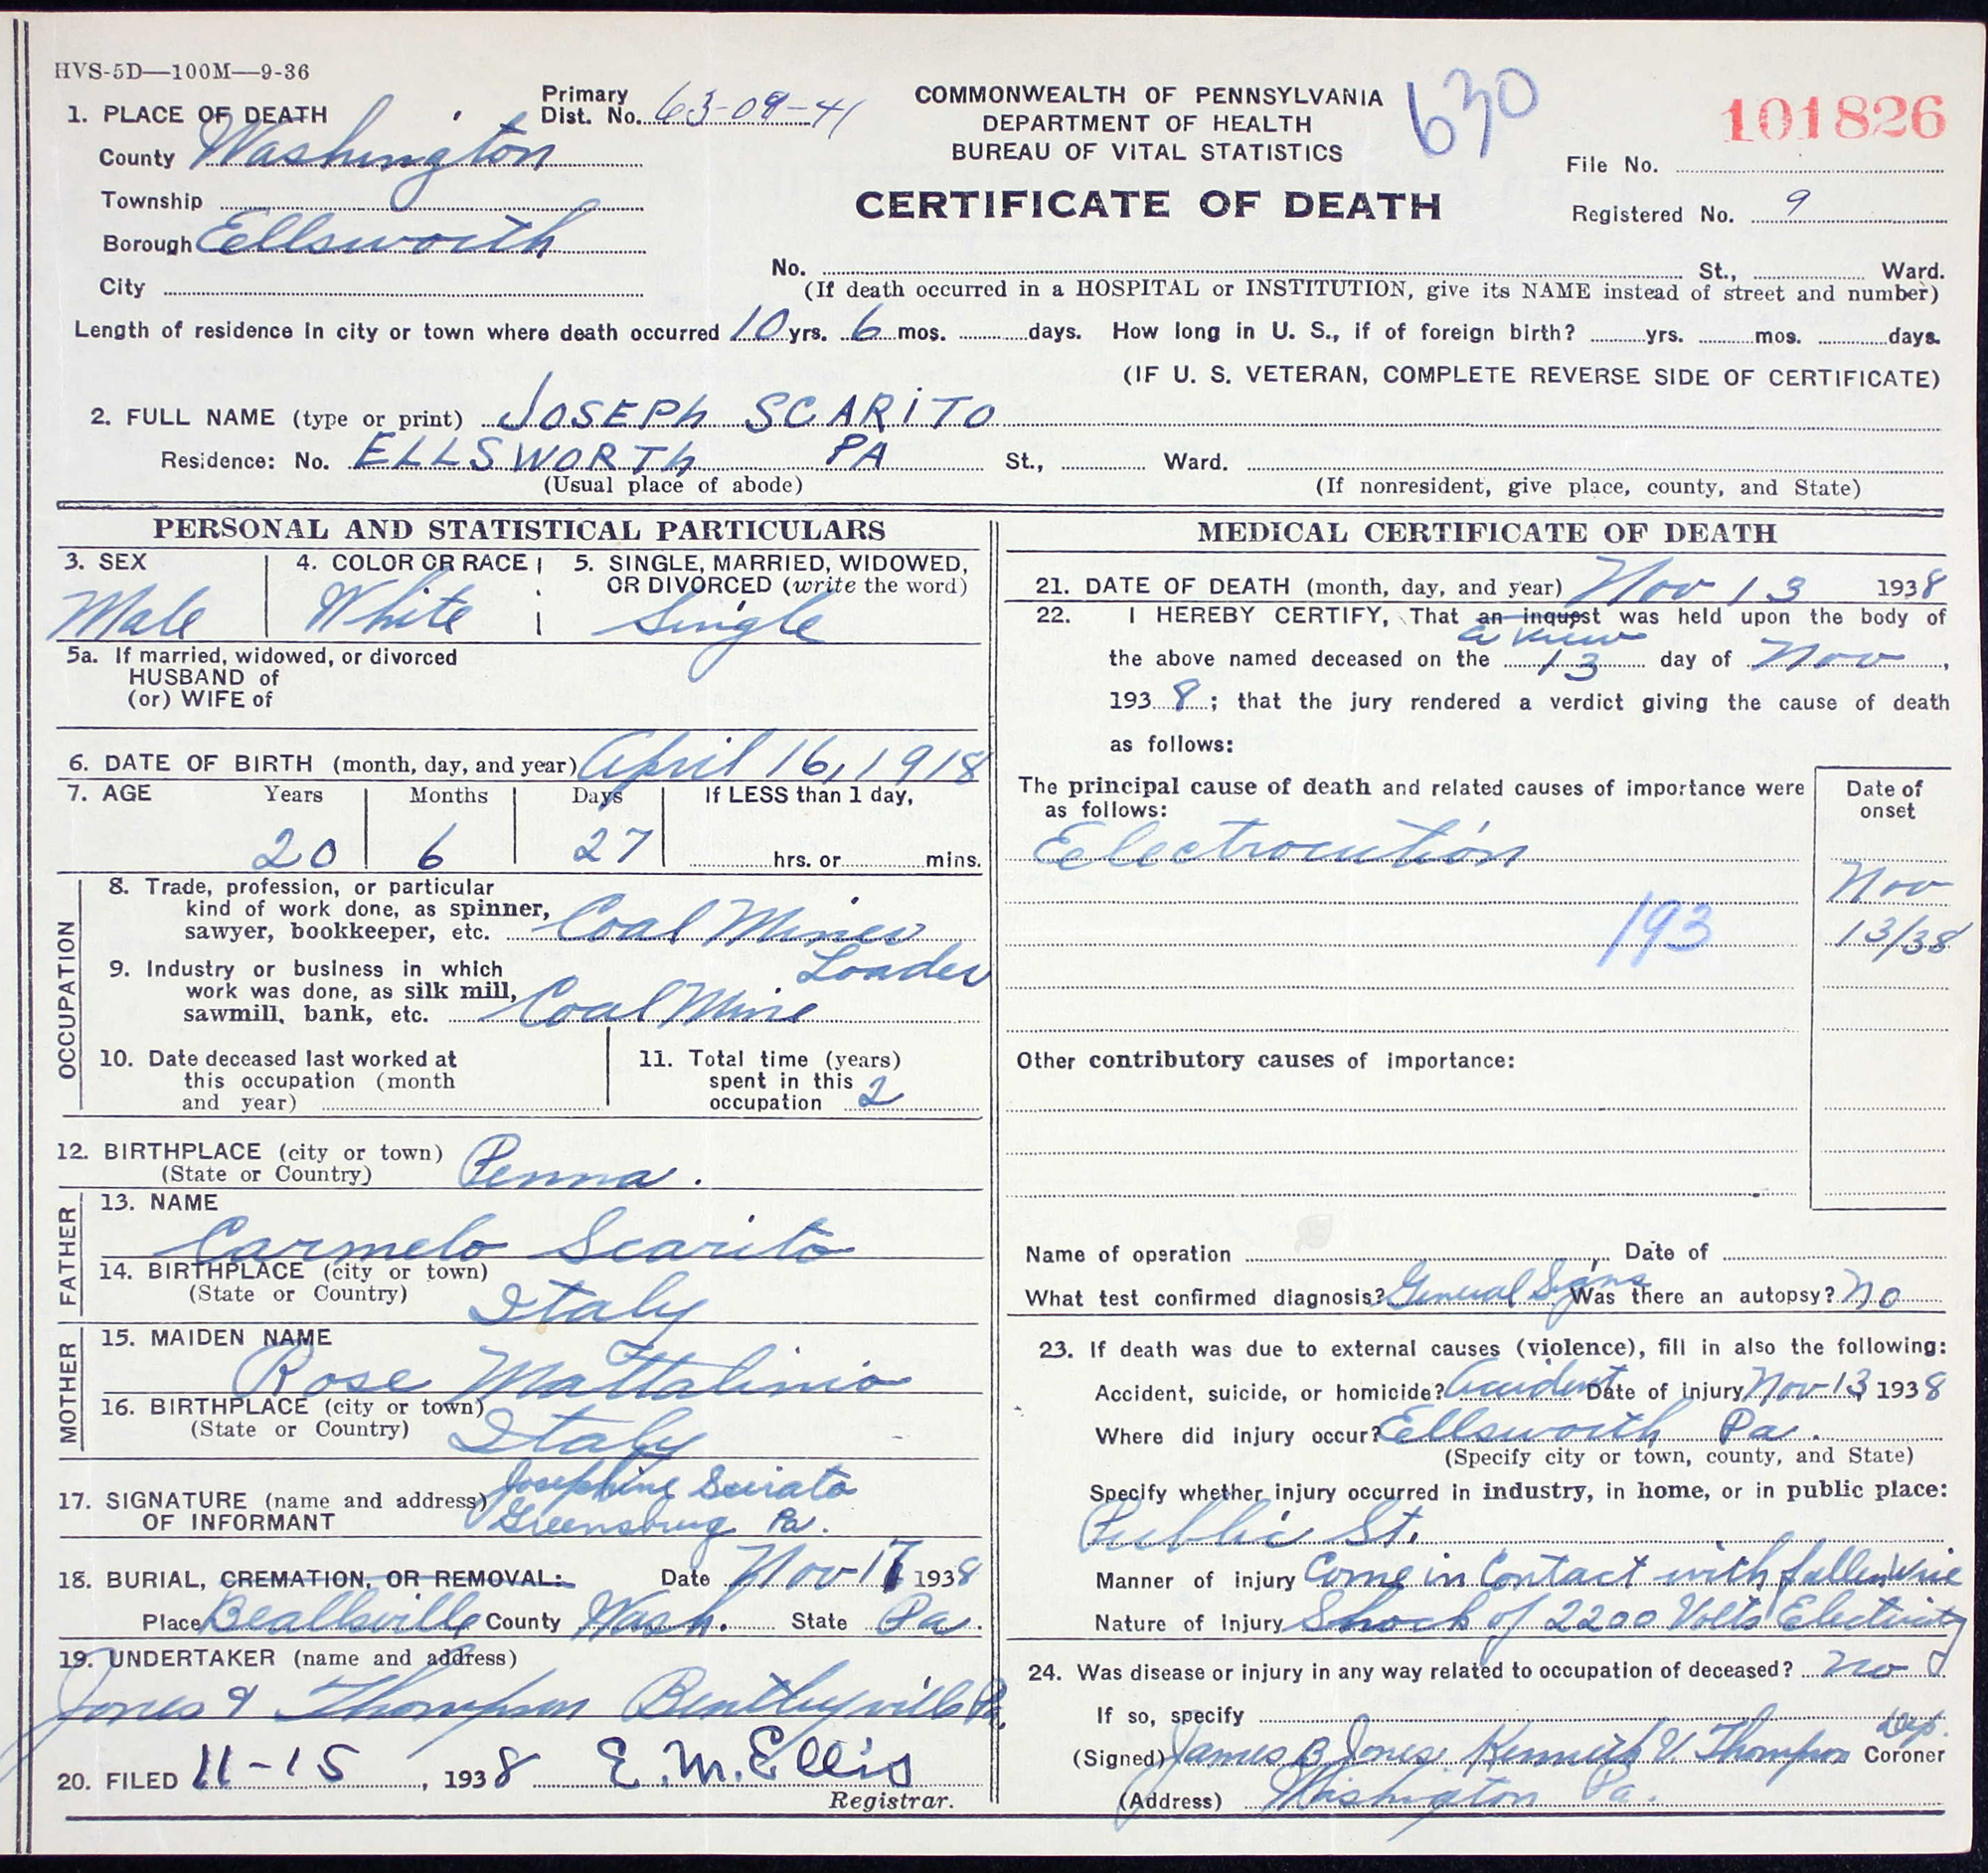 HVS-5D—100M—9-36
630
101826
COMMONWEALTH OF PENNSYLVANIA
DEPARTMENT OF HEALTH
BUREAU OF VITAL STATISTICS
CERTIFICATE OF DEATH
File No.
Registered No. 9
1. PLACE OF DEATH
Primary
Dist. No. 63-09-41
County Washington
Township
Borough Ellsworth
City
No. St., Ward.
(If death occurred in a HOSPITAL or INSTITUTION, give its NAME instead of street and number)
Length of residence in city or town where death occurred 10 yrs. 6 mos. days. How long in U. S., if of foreign birth? yrs. mos. days.
(IF U. S. VETERAN, COMPLETE REVERSE SIDE OF CERTIFICATE)
2. FULL NAME (type or print) JOSEPh SCARiTO
Residence: No. ELLSWORTh PA St., Ward.
(Usual place of abode) (If nonresident, give place, county, and State)
PERSONAL AND STATISTICAL PARTICULARS
3. SEX
Male
4. COLOR OR RACE
White
5. SINGLE, MARRIED, WIDOWED,
OR DIVORCED (write the word)
Single
5a. If married, widowed, or divorced
HUSBAND of
(or) WIFE of
6. DATE OF BIRTH (month, day, and year) April 16, 1918
7. AGE Years Months Days If LESS than 1 day,
20 6 27 hrs. or mins.
OCCUPATION
8. Trade, profession, or particular
kind of work done, as spinner,
sawyer, bookkeeper, etc. Coal Miner
Loader
9. Industry or business in which
work was done, as silk mill,
sawmill, bank, etc. Coal Mine
10. Date deceased last worked at
this occupation (month
and year)
11. Total time (years)
spent in this
occupation 2
12. BIRTHPLACE (city or town)
(State or Country) Penna.
FATHER
13. NAME
Carmelo Scarito
14. BIRTHPLACE (city or town)
(State or Country) Italy
MOTHER
15. MAIDEN NAME
Rose Mattalinio
16. BIRTHPLACE (city or town)
(State or Country) Italy
17. SIGNATURE (name and address)
OF INFORMANT
Josephine Scirato
Greensburg Pa.
18. BURIAL, CREMATION, OR REMOVAL: Date Nov 17 1938
Place Beallsville County Wash. State Pa.
19. UNDERTAKER (name and address)
Jones & Thompson Bentleyville Pa.
20. FILED 11-15, 1938 E.M. Ellis
Registrar.
MEDICAL CERTIFICATE OF DEATH
21. DATE OF DEATH (month, day, and year) Nov 13 1938
22. I HEREBY CERTIFY, That an inquest was held upon the body of
a view
the above named deceased on the 13 day of Nov,
1938; that the jury rendered a verdict giving the cause of death
as follows:
The principal cause of death and related causes of importance were
as follows:
Date of
onset
Electrocution
Nov
13/38
193
Other contributory causes of importance:
Name of operation Date of
What test confirmed diagnosis? General Signs Was there an autopsy? No
23. If death was due to external causes (violence), fill in also the following:
Accident, suicide, or homicide? Accident Date of injury Nov 13, 1938
Where did injury occur? Ellsworth Pa.
(Specify city or town, county, and State)
Specify whether injury occurred in industry, in home, or in public place:
Public St.
Manner of injury Come in Contact with fallen Wire
Nature of injury Shock of 2200 Volts Electricity
24. Was disease or injury in any way related to occupation of deceased? no
If so, specify
(Signed) James B Jones Kenneth V Thompson Dep. Coroner
(Address) Washington Pa.